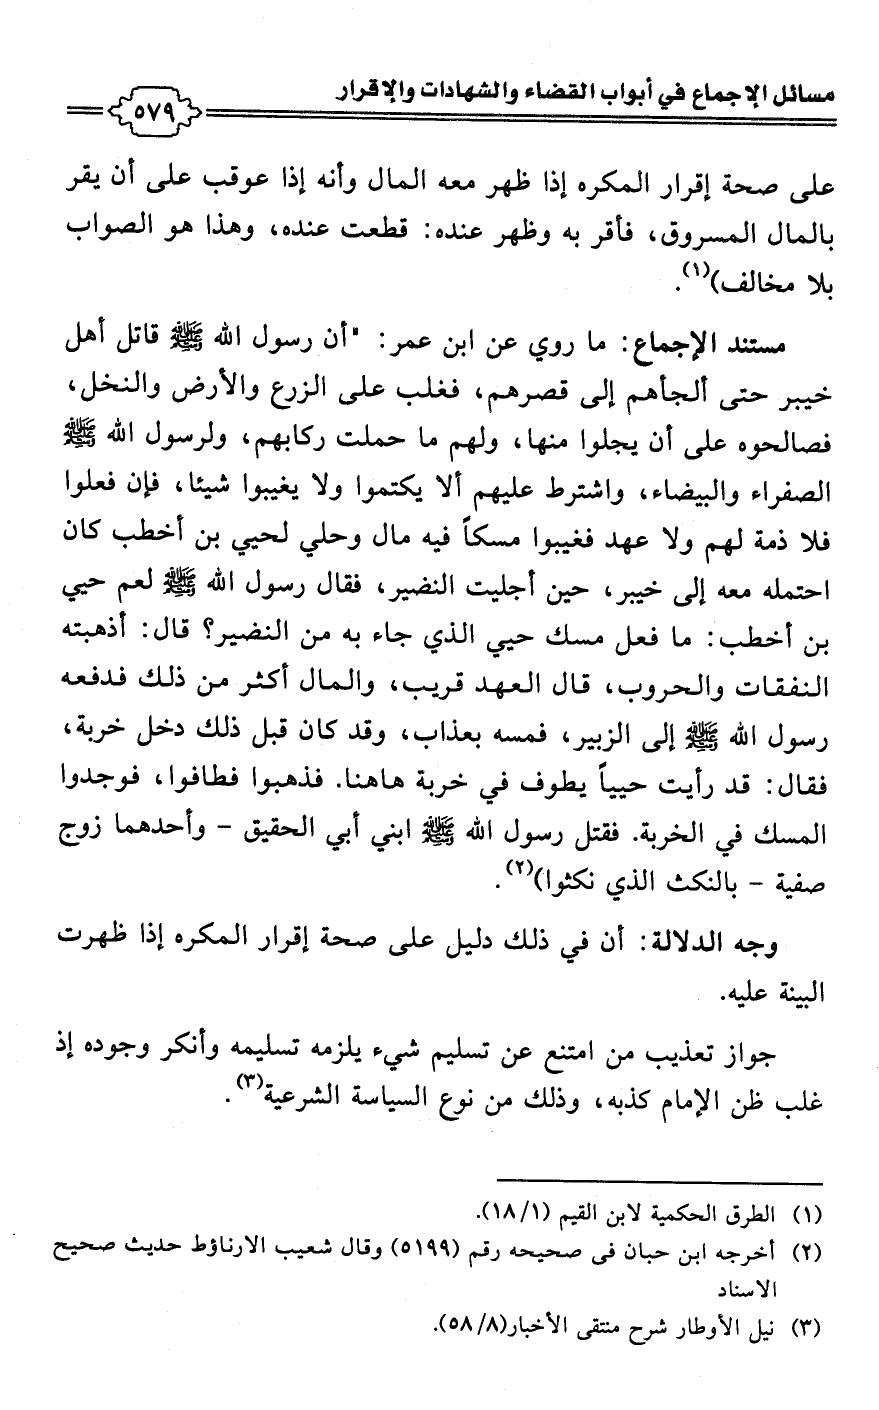 مسائل الإجماع في أبواب القضاء والشهادات والإقرار
٥٧٩
على صحة إقرار المكره إذا ظهر معه المال وأنه إذا عوقب على أن يقر
بالمال المسروق، فأقر به وظهر عنده: قطعت عنده، وهذا هو الصواب
بلا مخالف)(١).
مستند الإجماع: ما روي عن ابن عمر: "أن رسول الله ﷺ قاتل أهل
خيبر حتى ألجأهم إلى قصرهم، فغلب على الزرع والأرض والنخل،
فصالحوه على أن يجلوا منها، ولهم ما حملت ركابهم، ولرسول الله ﷺ
الصفراء والبيضاء، واشترط عليهم ألا يكتموا ولا يغيبوا شيئا، فإن فعلوا
فلا ذمة لهم ولا عهد فغيبوا مسكاً فيه مال وحلي لحيي بن أخطب كان
احتمله معه إلى خيبر، حين أجليت النضير، فقال رسول الله ﷺ لعم حيي
بن أخطب: ما فعل مسك حيي الذي جاء به من النضير؟ قال: أذهبته
النفقات والحروب، قال العهد قريب، والمال أكثر من ذلك فدفعه
رسول الله ﷺ إلى الزبير، فمسه بعذاب، وقد كان قبل ذلك دخل خربة،
فقال: قد رأيت حيياً يطوف في خربة هاهنا. فذهبوا فطافوا، فوجدوا
المسك في الخربة. فقتل رسول الله ﷺ ابني أبي الحقيق – وأحدهما زوج
صفية – بالنكث الذي نكثوا)(٢).
وجه الدلالة: أن في ذلك دليل على صحة إقرار المكره إذا ظهرت
البينة عليه.
جواز تعذيب من امتنع عن تسليم شيء يلزمه تسليمه وأنكر وجوده إذ
غلب ظن الإمام كذبه، وذلك من نوع السياسة الشرعية(٣).
(١) الطرق الحكمية لابن القيم (١٨/١).
(٢) أخرجه ابن حبان فى صحيحه رقم (٥١٩٩) وقال شعيب الارناؤط حديث صحيح
الاسناد
(٣) نيل الأوطار شرح منتقى الأخبار(٥٨/٨).